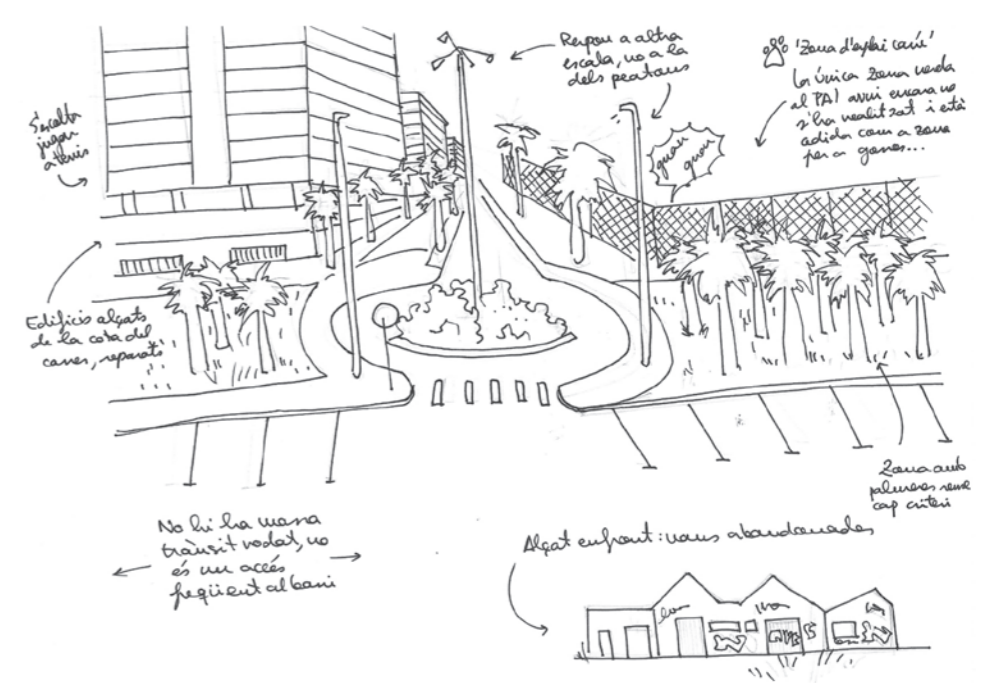 S'escolta
jugar
a tenis
Respon a altra
escala, no a la
dels peatons
'Zona d'esplai caní'
La única zona verda
al PAI avui encara no
s'ha realitzat i està
com a zona
per a gossos...
guau
guau
Edificis alçats
de la cota del
carrer, reparats
Zona amb
palmeres sense
cap criteri
No hi ha massa
trànsit rodat, no
és un accés
freqüent al barri
Alçat enfront: naus abandonades